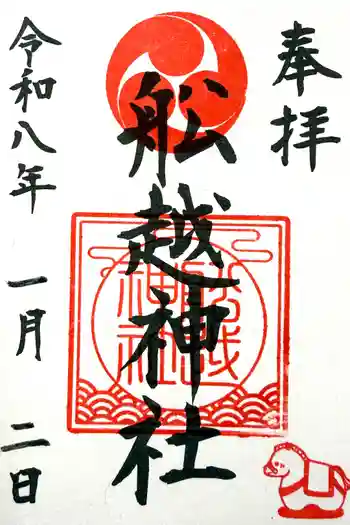 奉拝
舩越神社
舩越神社
令和八年 一月 二日